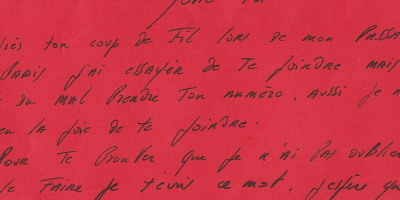 ton coup de fil lors de mon PASSA
PARIS j'ai essayer de Te joindre MAIS
du MAL Prendre Ton numéro. AUSSI je n
la joie de te joindre.
POUR Te Prouver que je n'AI PAS OUBLIE
le FAIRE je t'écris ce mot. J'espère qu